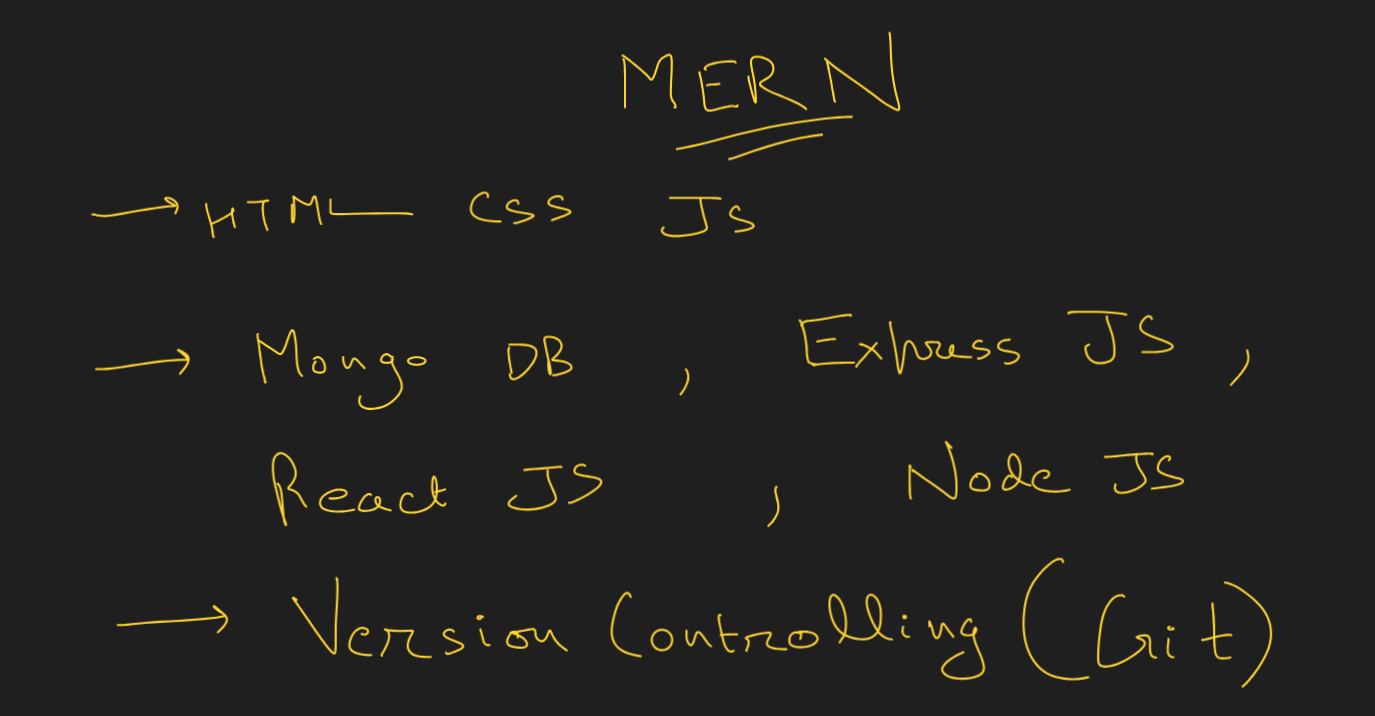 MERN
→ HTML CSS JS
→ Mongo DB , Express JS ,
React JS , Node JS
→ Version Controlling (Git)